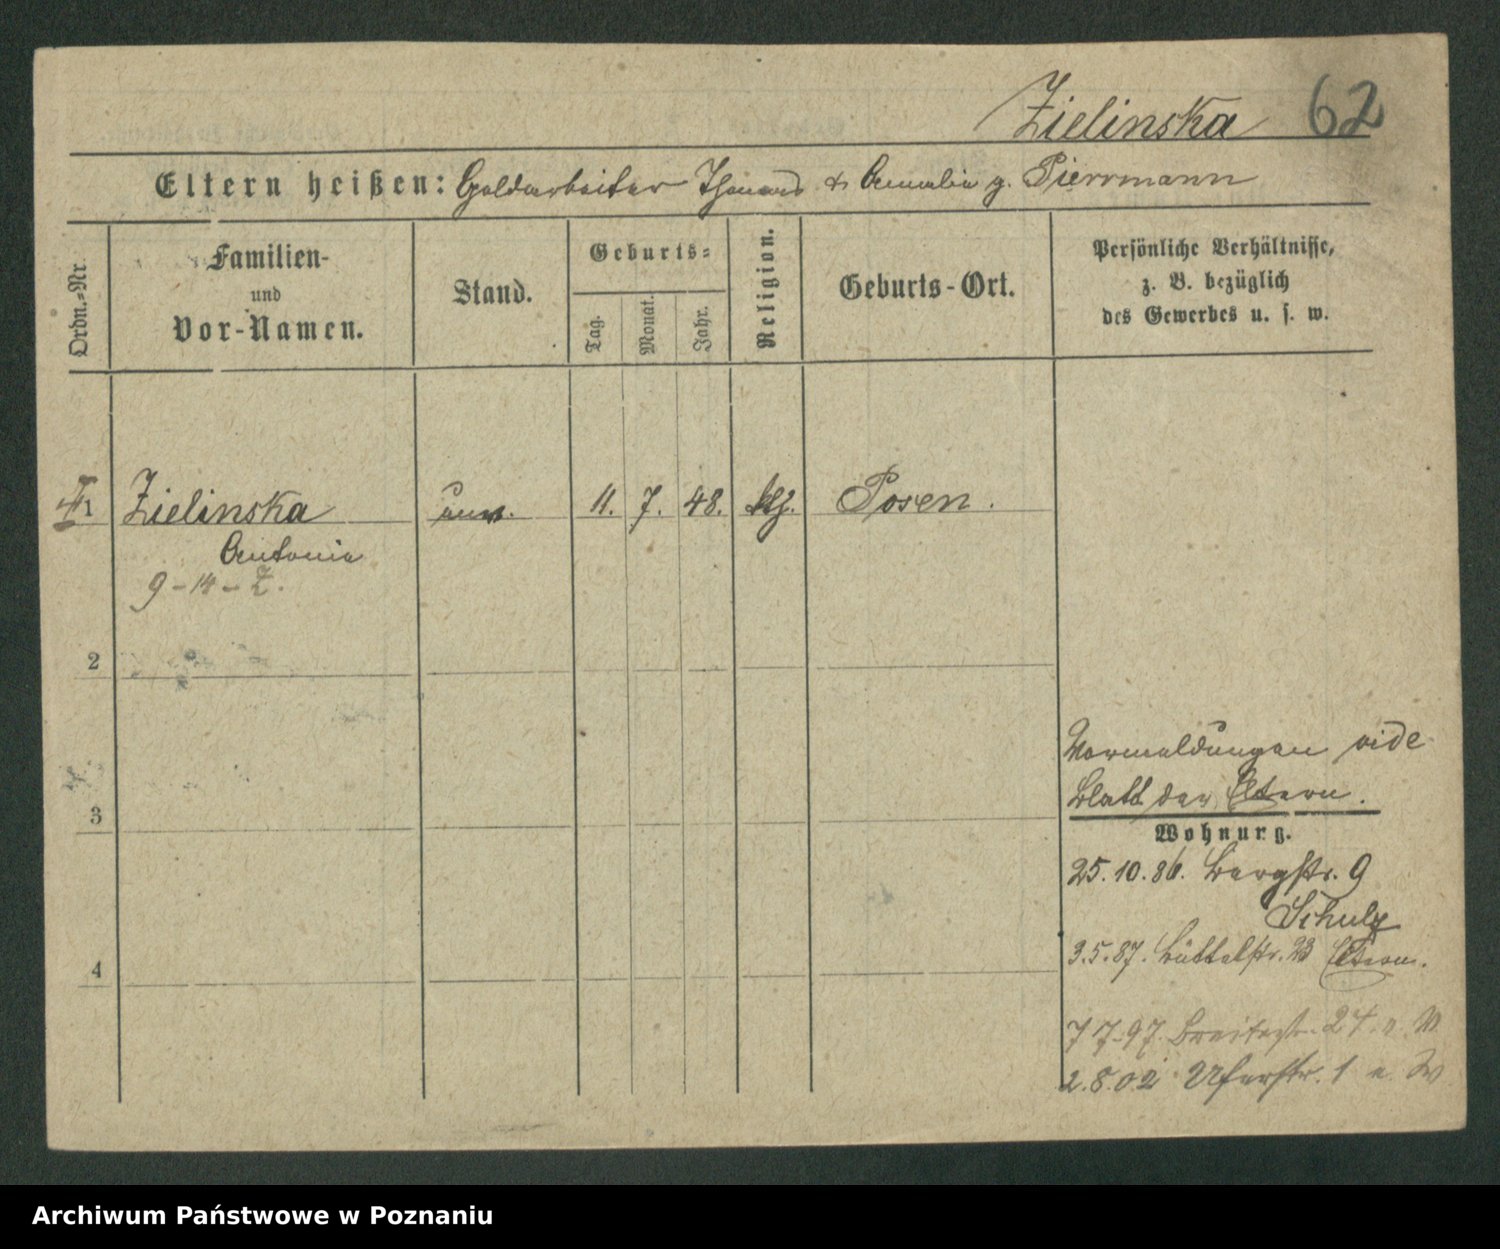 Zielinska 62
Eltern heißen: Goldarbeiter Thomas & Amalia g. Pierrmann
Ordn.=Nr.
Familien-
und
Vor-Namen.
Stand.
Geburts=
Tag.
Monat.
Jahr.
Religion.
Geburts-Ort.
Persönliche Verhältnisse,
z. B. bezüglich
des Gewerbes u. s. w.
1 Zielinska unv. 11. 7. 48. ktḥ. Posen.
Antonia
9-14-Z.
2
3
4
Vormeldungen vide
Blatt der Eltern.
Wohnung.
25.10.86. Bergstr. 9
Schulz
3.5.87. Büttelstr. 23 Eltern.
7 7-97. Breitestr. 24 e. W
2.8.02 Uferstr. 1 e. W
Archiwum Państwowe w Poznaniu